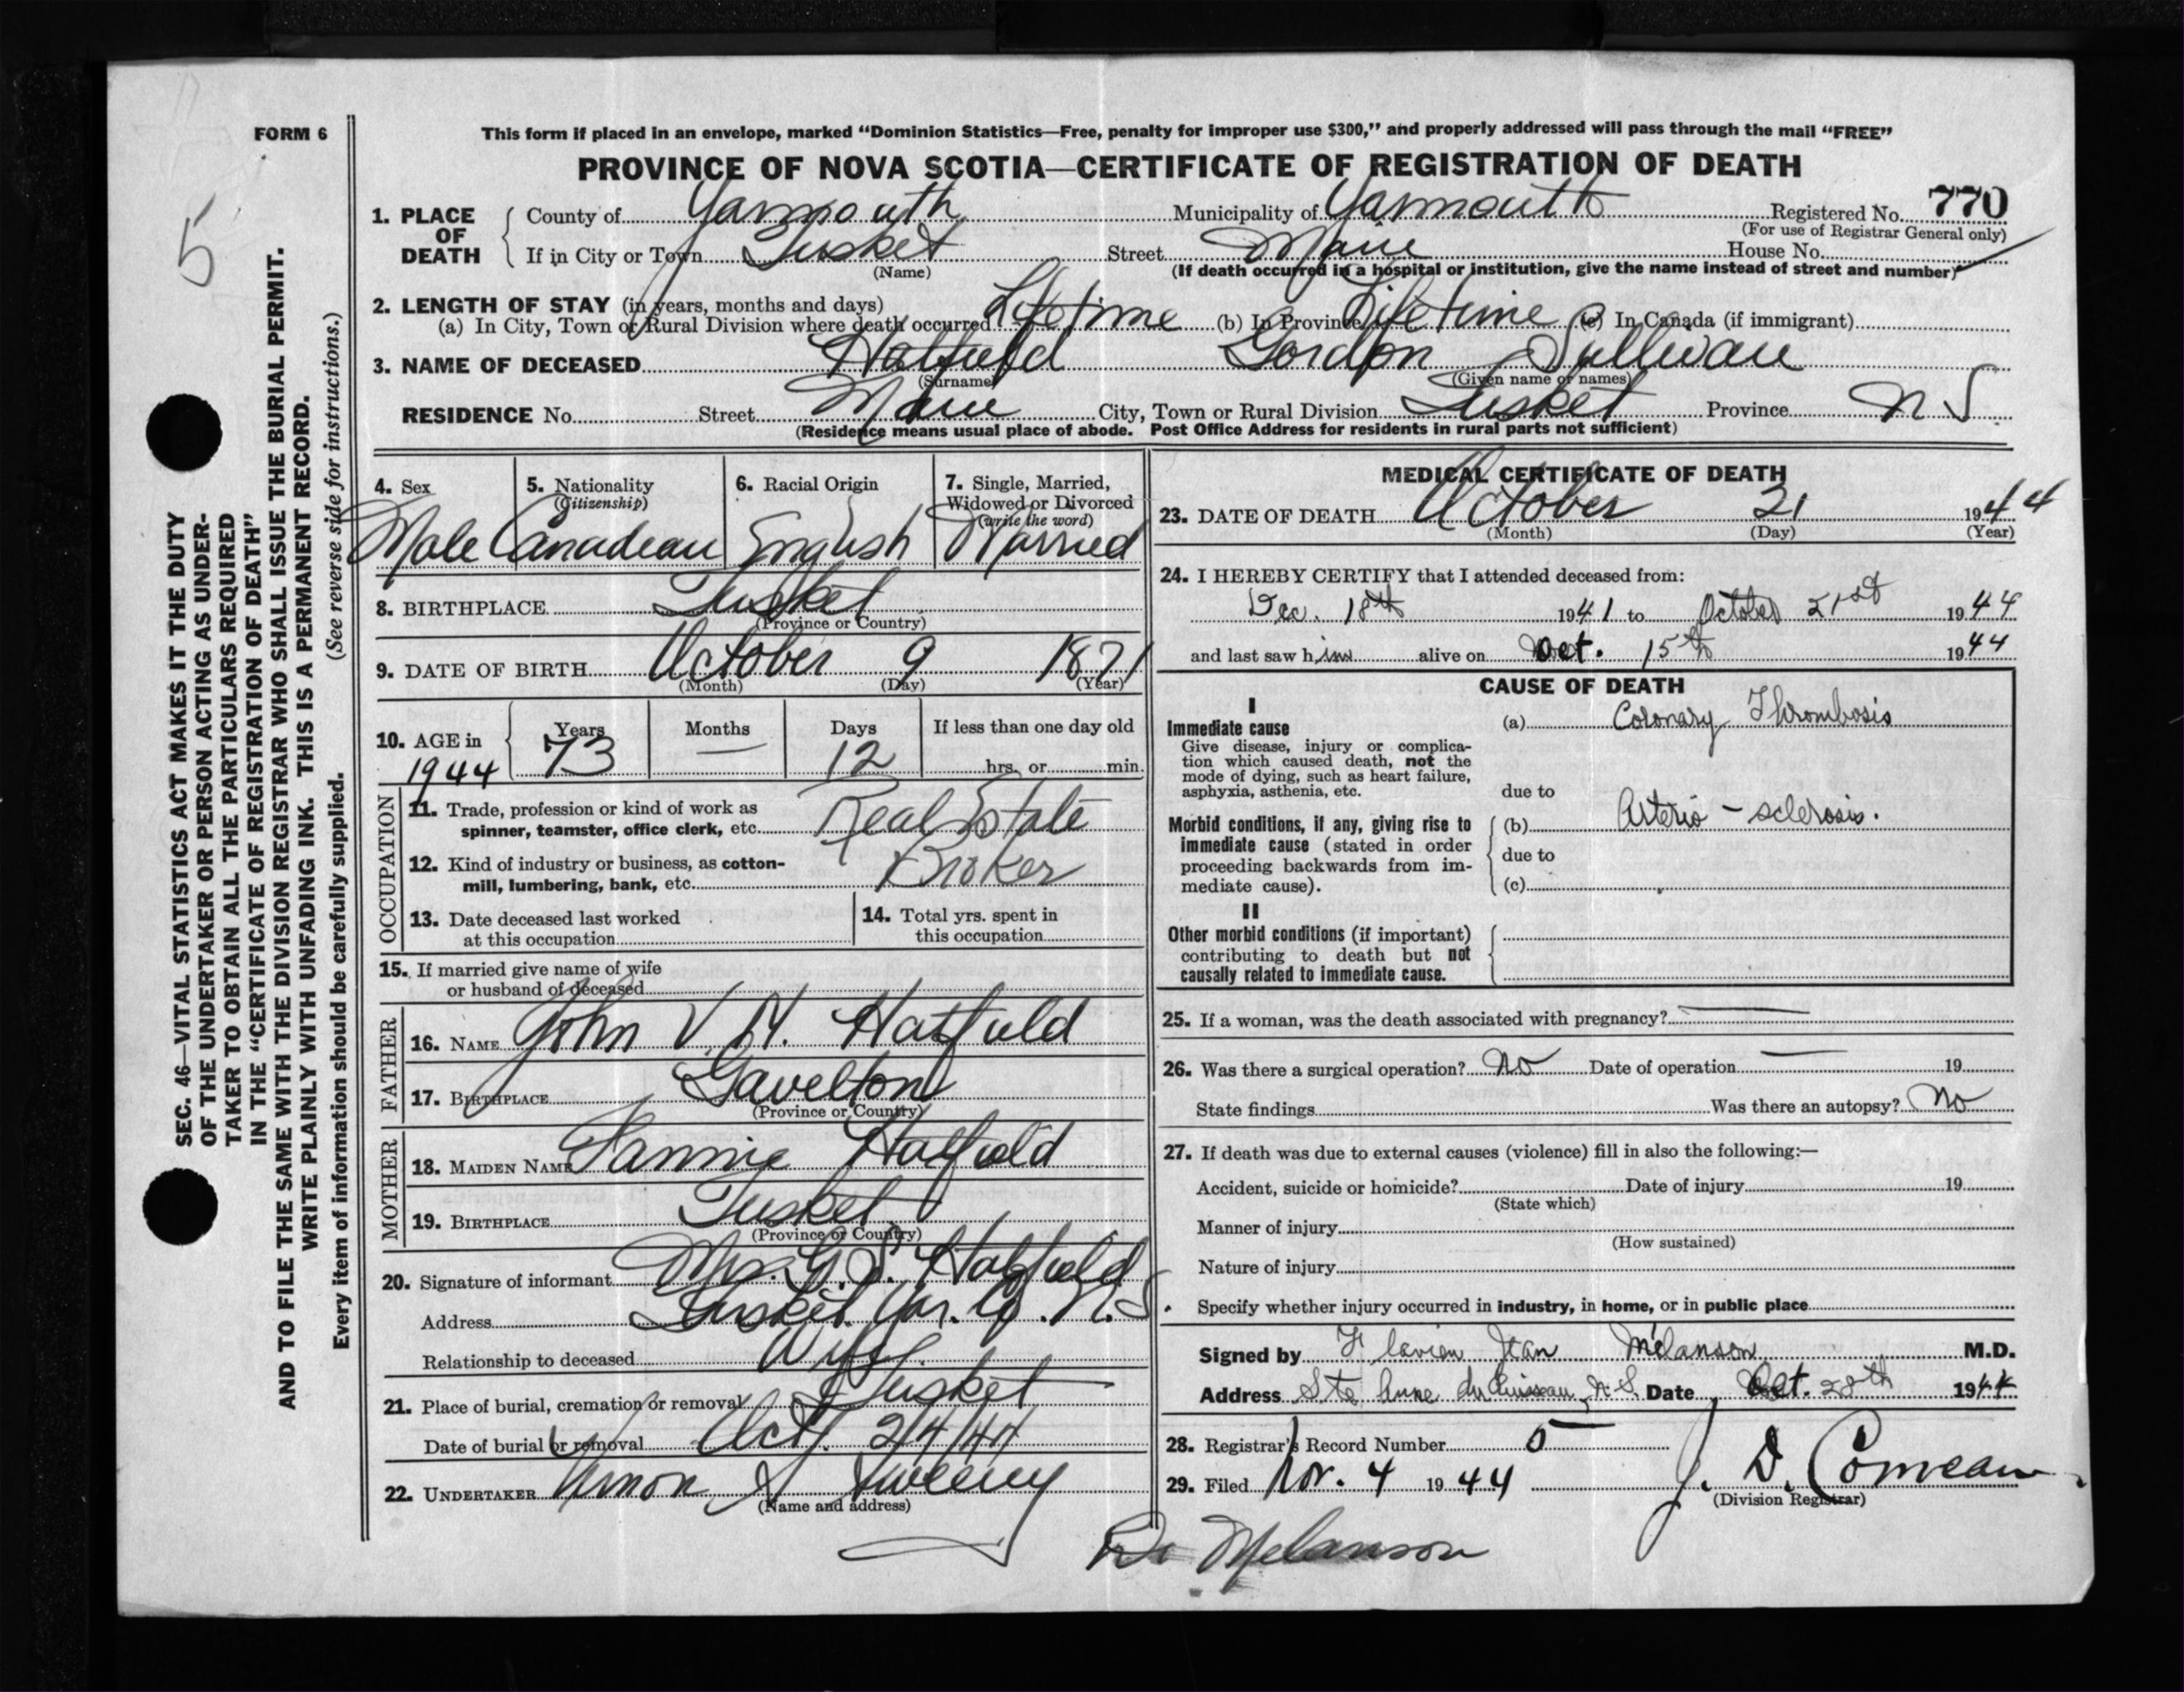 5
FORM 6
This form if placed in an envelope, marked "Dominion Statistics—Free, penalty for improper use $300," and properly addressed will pass through the mail "FREE"
PROVINCE OF NOVA SCOTIA—CERTIFICATE OF REGISTRATION OF DEATH
SEC. 46—VITAL STATISTICS ACT MAKES IT THE DUTY
OF THE UNDERTAKER OR PERSON ACTING AS UNDER-
TAKER TO OBTAIN ALL THE PARTICULARS REQUIRED
IN THE "CERTIFICATE OF REGISTRATION OF DEATH"
AND TO FILE THE SAME WITH THE DIVISION REGISTRAR WHO SHALL ISSUE THE BURIAL PERMIT.
WRITE PLAINLY WITH UNFADING INK. THIS IS A PERMANENT RECORD.
Every item of information should be carefully supplied. (See reverse side for instructions.)
1. PLACE OF DEATH County of Yarmouth Municipality of Yarmouth Registered No. 770
(For use of Registrar General only)
If in City or Town Tusket Street Main House No.
(Name) (If death occurred in a hospital or institution, give the name instead of street and number)
2. LENGTH OF STAY (in years, months and days)
(a) In City, Town or Rural Division where death occurred Lifetime (b) In Province Lifetime (c) In Canada (if immigrant)
3. NAME OF DECEASED Hatfield Gordon Sullivan
(Surname) (Given name or names)
RESIDENCE No. Street Main City, Town or Rural Division Tusket Province N S
(Residence means usual place of abode. Post Office Address for residents in rural parts not sufficient)
4. Sex 5. Nationality (Citizenship) 6. Racial Origin 7. Single, Married, Widowed or Divorced (write the word)
Male Canadian English Married
8. BIRTHPLACE Tusket
(Province or Country)
9. DATE OF BIRTH October 9 1871
(Month) (Day) (Year)
10. AGE in 1944 Years Months Days If less than one day old
73 — 12 hrs. or min.
OCCUPATION
11. Trade, profession or kind of work as
spinner, teamster, office clerk, etc. Real Estate
12. Kind of industry or business, as cotton-
mill, lumbering, bank, etc. Broker
13. Date deceased last worked
at this occupation
14. Total yrs. spent in
this occupation
15. If married give name of wife
or husband of deceased
FATHER
16. NAME John V. N. Hatfield
17. BIRTHPLACE Gavelton
(Province or Country)
MOTHER
18. MAIDEN NAME Fannie Hatfield
19. BIRTHPLACE Tusket
(Province or Country)
20. Signature of informant Mrs. G. S. Hatfield
Address Tusket. Yar. Co. N.S.
Relationship to deceased Wife.
21. Place of burial, cremation or removal Tusket
Date of burial or removal Oct. 24/44
22. UNDERTAKER Vernon Sweeny
(Name and address)
MEDICAL CERTIFICATE OF DEATH
23. DATE OF DEATH October 21 1944
(Month) (Day) (Year)
24. I HEREBY CERTIFY that I attended deceased from:
Dec. 18th 1941 to October 21st 1944
and last saw him alive on Oct. 15th 1944
CAUSE OF DEATH
I
Immediate cause (a) Coronary Thrombosis
Give disease, injury or complica-
tion which caused death, not the
mode of dying, such as heart failure,
asphyxia, asthenia, etc. due to
Morbid conditions, if any, giving rise to (b) Arterio - sclerosis.
immediate cause (stated in order
proceeding backwards from im- due to
mediate cause). (c)
II
Other morbid conditions (if important)
contributing to death but not
causally related to immediate cause.
25. If a woman, was the death associated with pregnancy? —
26. Was there a surgical operation? No Date of operation — 19
State findings Was there an autopsy? No
27. If death was due to external causes (violence) fill in also the following:—
Accident, suicide or homicide? Date of injury 19
(State which)
Manner of injury
(How sustained)
Nature of injury
Specify whether injury occurred in industry, in home, or in public place
Signed by Flavien Jean Melanson M.D.
Address Ste Anne du Ruisseau, N.S. Date Oct. 28th 1944
28. Registrar's Record Number 5
29. Filed Nov. 4 1944 J. D. Comeau
(Division Registrar)
Dr Melanson